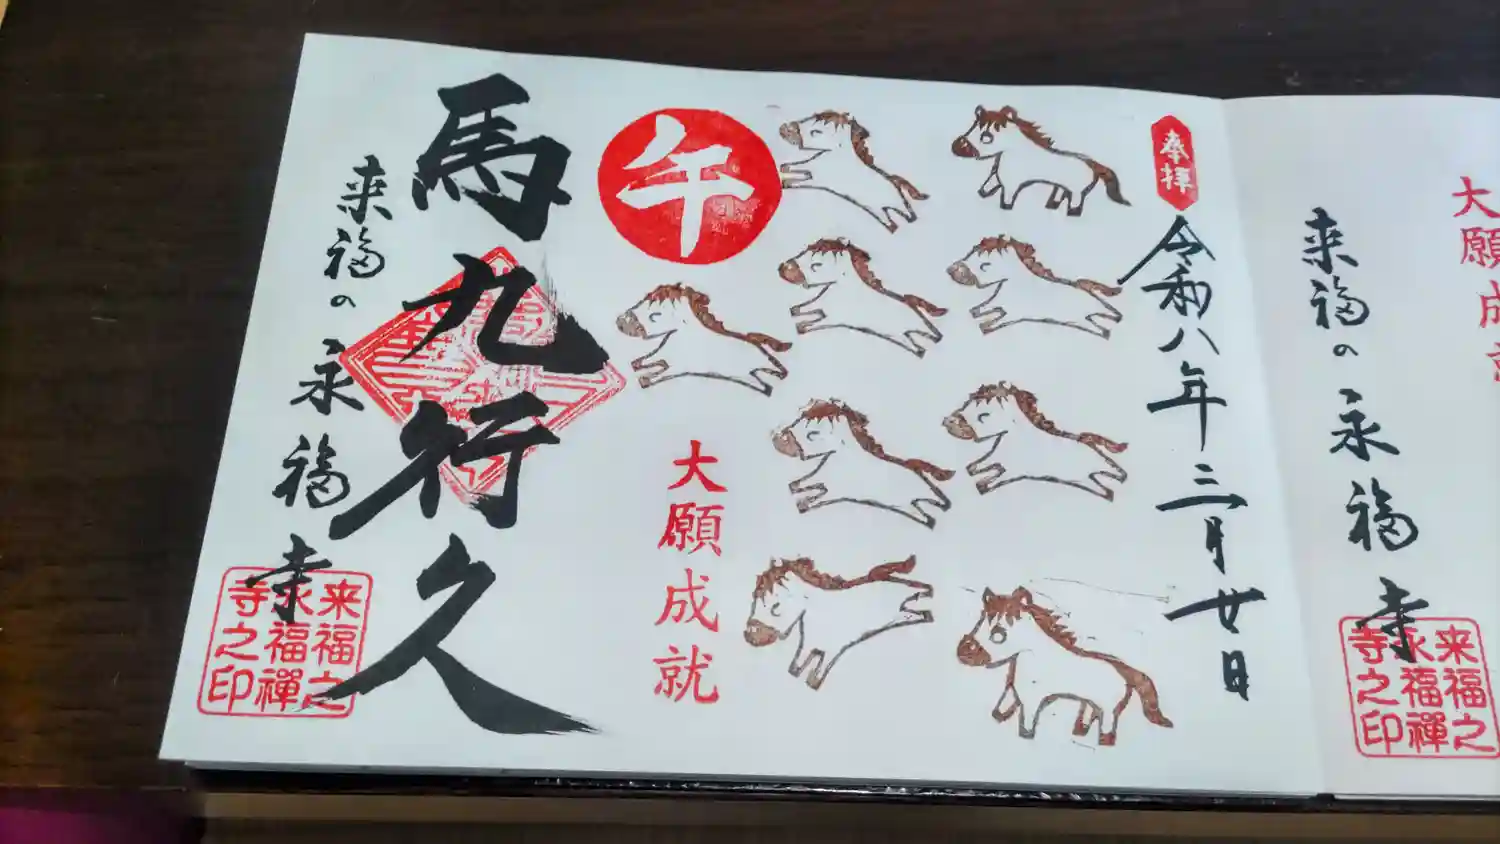 奉拝
令和八年三月廿日
午
大願成就
馬九行久
来福の永福寺
来福之
永福禅
寺之印
大願成
来福の永福寺
来福之
永福禅
寺之印